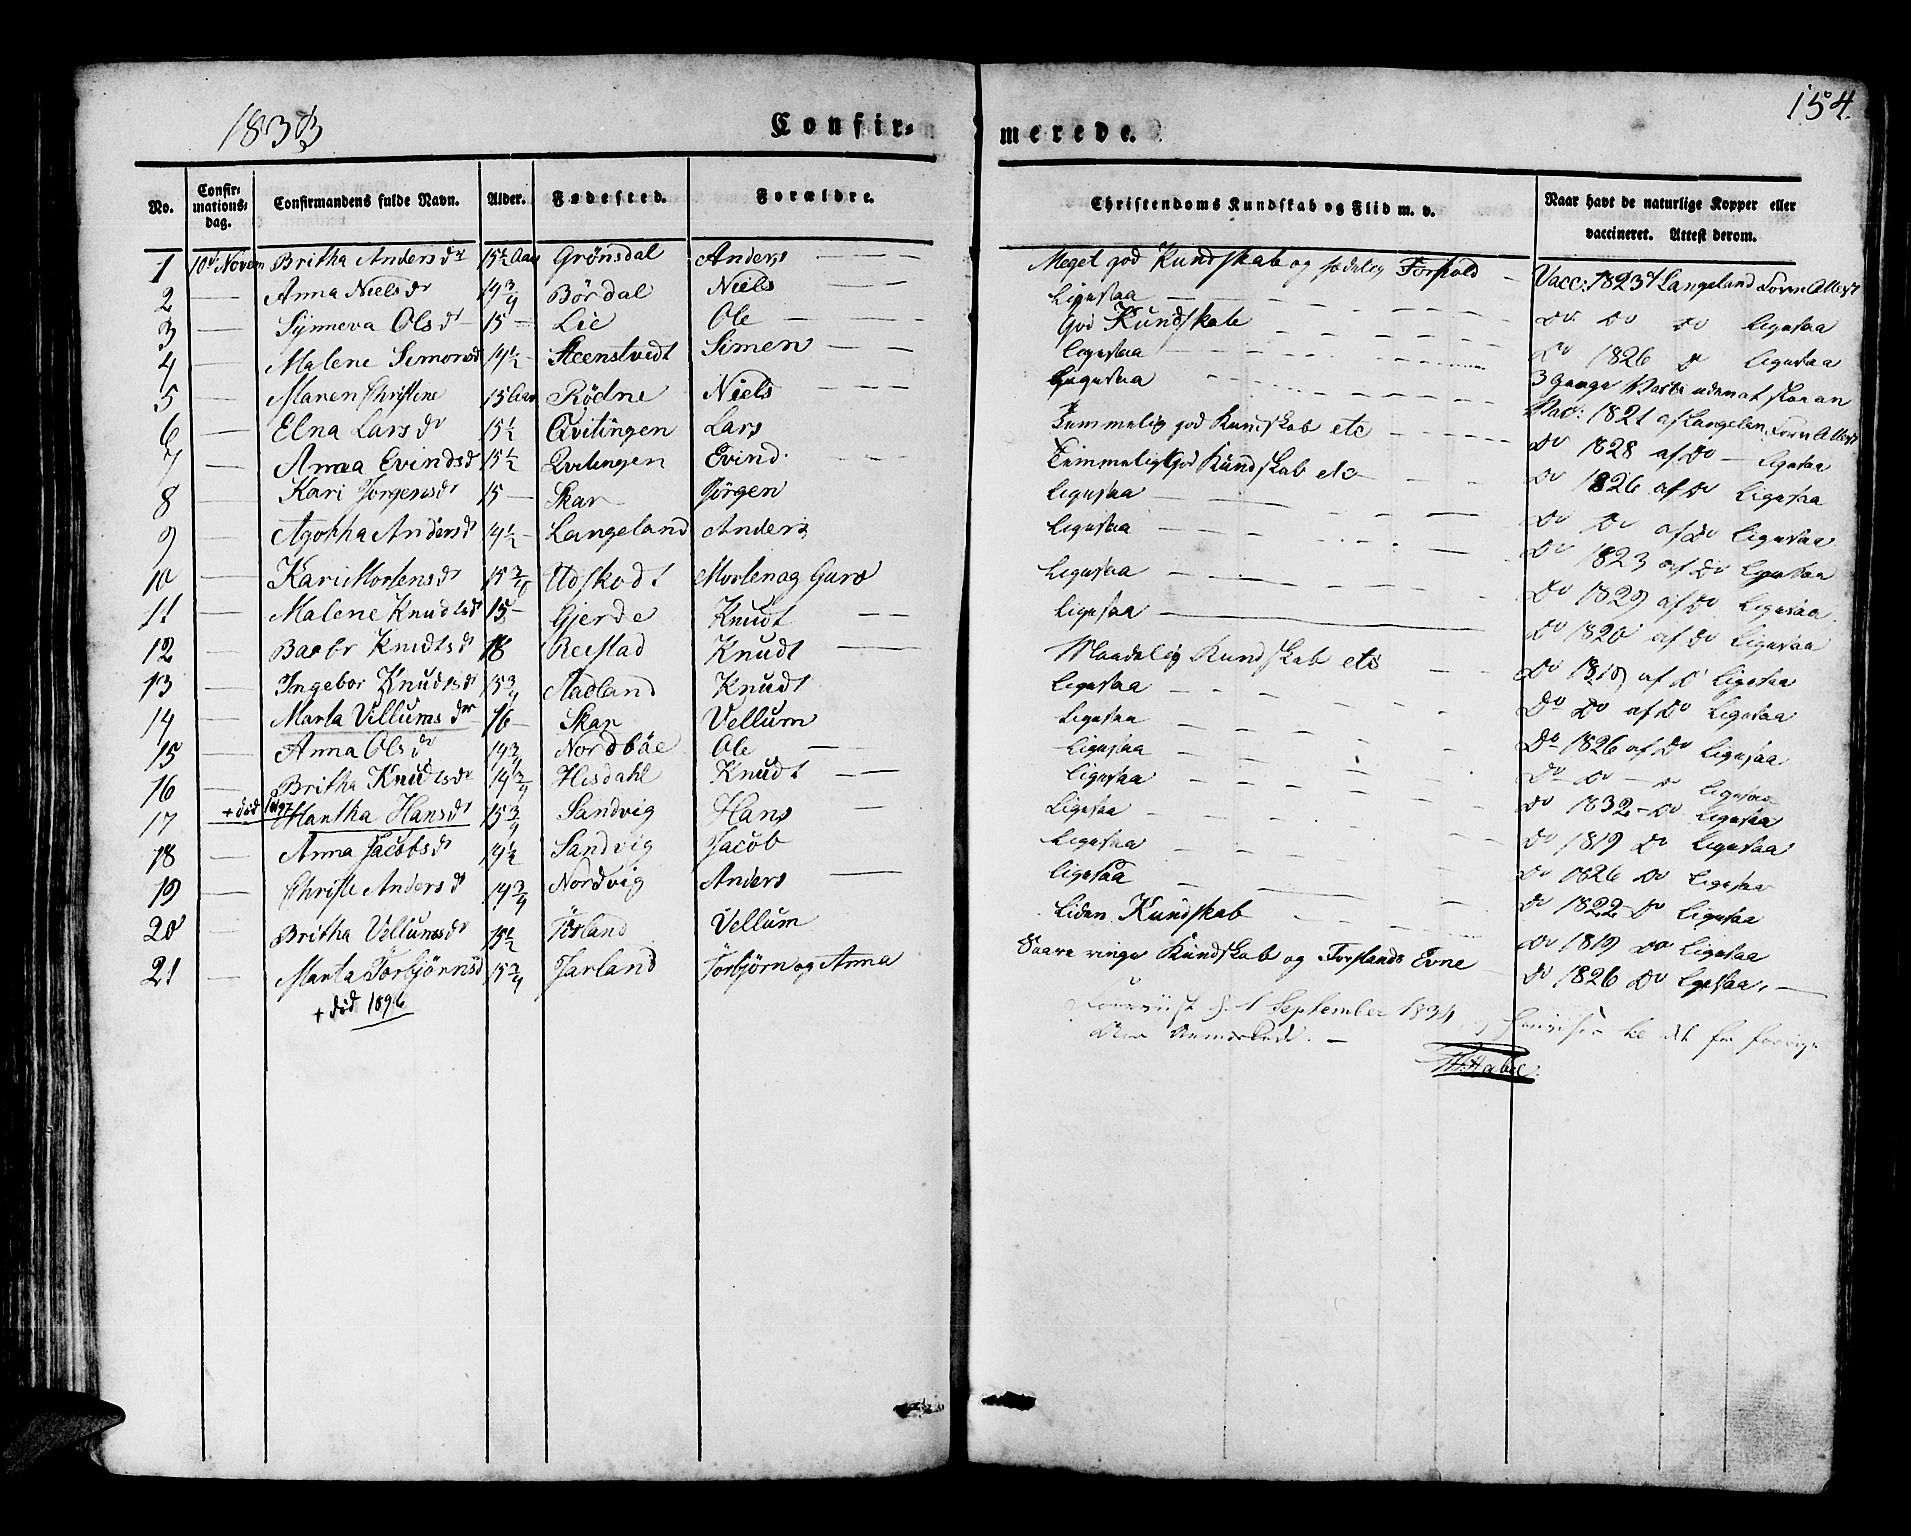 1833
Confir-
merede.
154.
No.
Confirmationsdag.
Confirmandens fulde Navn.
Alder.
Fødested.
Forældre.
Christendoms Kundskab og Flid m. v.
Naar havt de naturlige Kopper eller vaccineret. Attest derom.
1 10de Novem Britha Andersdr 15½ Aar Grönsdal Anders — — — Meget god Kundskab og sædelig Forhold — Vacc: 1823 Langeland
2 — Anna Nielsdr 14¾ Bördal Niels — — — Ligesaa — Do Do Do Ligesaa
3 — Synneva Olsdr 15 — Lie Ole — — — God Kundskab — Do 1826 Do Ligesaa
4 — Malene Simonsd 14½ — Steenstvedt Simen — — — Ligesaa — 3 Gange
5 — Maren Christene 15 Aar Rödne Niels — — — Ligesaa — Vac: 1821 af Langelan
6 — Elna Larsdr 15½ Qvitingen Lars Temmelig god Kundskab etc — Do 1828 af Do — Ligesaa
7 — Anna Evindsd 15½ Qvitingen Evind — — Temmelig God Kundskab etc — Do 1826 af Do Ligesaa
8 — Kari Jörgensdr 15 — Skar Jörgen Ligesaa — Do Do af Do Ligesaa
9 — Agatha Andersd 14½ — Langeland Anders Ligesaa — Do 1823 af Do Ligesaa
10 — Kari Mortensdr 15¾ Udskodt Morten og Guro Ligesaa — Do 1829 af Do Ligesaa
11 — Malene Knudtsdr 15 — Gjerde Knudt — — Ligesaa — Do 1820 af Do Ligesaa
12 — Barbr Knudtsdr 18 Reistad Knudt — — Maadelig Kundskab etc — Do 1819 af Do Ligesaa
13 — Ingebor Knudtsdr 15¾ Aadland Knudt Ligesaa — Do Do af Do Ligesaa
14 — Marta Villumsdr 16 — Skar Vellum Ligesaa — Do 1826 af Do Ligesaa
15 — Anna Olsdr 14¾ Nordböe Ole — Ligesaa — Do Do — Ligesaa
16 — Britha Knudtsdr 14¾ Hisdahl Knudt — — Ligesaa — Do 1832 — Do Ligesaa
17 + död 1897 Mantha Hansdr 15¾ Sandvig Hans — Ligesaa — Do 1819 Do Ligesaa
18 — Anna Jacobsdr 14½ Sandvig Jacob Ligesaa — Do 1826 Do Ligesaa
19 — Christi Andersdr 14¾ Nordvig Anders — Ligesaa — Do 1822 — Do Ligesaa
20 — Britha Vellumsdr 15½ Vellum Liden Kundskab — Do 1819 Do Ligesaa
21 — Marta Torbjörnsd 15¾ Jarland Torbjörn og Anna Saare ringe Kundskab og Forstands Evne — Do 1826 Do Ligesaa. —
+ död 1896
1 September 1834